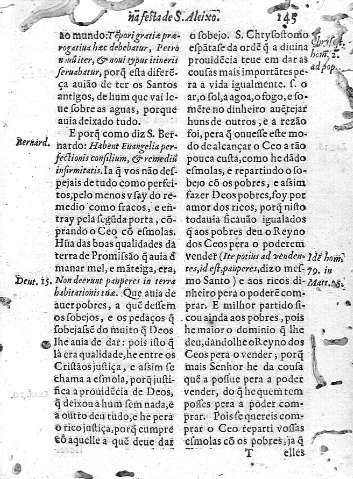 na festa de S. Aleixo. 145
ao mundo: Tẽpori gratiæ præ
rogatiua hæc debebatur, Petrò
nuditer, & noui typus itineris
seruabatur, porq̃ esta diferẽ
ça auião de ter os Santos
antigos, de hum que vai le
ue sobre as aguas, porque
auia deixado tudo.
E porq̃ como diz S. Ber-
nardo: Habent Euangelia per
fectionis consilium, & remediũ
infirmitatis. Ia q̃ vos não des-
pejais de tudo como perfei-
tos, pelo menos vsay do re-
medio como fracos, e en-
tray pela segũda porta, cõ-
prando o Ceo cõ esmolas.
Hũa das boas qualidades da
terra de Promissão q̃ auia d̃
manar mel, e mãteiga, era,
Non deerunt pauperes in terra
habitationis tuæ. Que auia de
auer pobres, a quẽ dessem
os sobejos, e os pedaços q̃
sobejassẽ do muito q̃ Deos
lhe auia de dar: pois isto q̃
là era qualidade, he entre os
Cristãos justiça, e assim se
chama a esmola, porq̃ justi-
fica a prouidẽcia de Deos,
q̃ deixou a hum sem nada, e
a outro deu tudo, e he pera
o rico justiça, porq̃ cumpre
cõ aquelle a quẽ deue dar
Bernard.
Deut. 15.
o sobejo. S. Chrysostomo
espãtase da ordẽ q̃ a diuina
prouidẽcia teue em dar as
cousas mais importãtes pe-
ra a vida igualmente. s. o
ar, o sol, a agoa, o fogo, e so-
mẽte no dinheiro auẽtejar
huns de outros, e a rezão
foi, pera q̃ ouuesse este mo-
do de alcançar o Ceo a tão
pouca custa, como he dãdo
esmolas, e repartindo o so-
bejo cõ os pobres, e assim
fazer Deos pobres, foy por
amor dos ricos, porq̃ nisto
todauia ficauão igualados
q̃ aos pobres deu o Reyno
dos Ceos pera o poderem
vender (Ite potius ad venden-
tes, id est, pauperes, dizo mes-
mo Santo) e aos ricos di-
nheiro pera o poderẽ com-
prar. E milhor partido si-
cou ainda aos pobres, pois
he maior o dominio q̃ lhe
deu, dandolhe o Reyno dos
Ceos pera o vender, porq̃
mais Senhor he da cousa
quẽ a possue pera a poder
vender, do q̃ he quẽ tem
posses pera a poder com-
prar. Pois se quereis com-
prar o Ceo reparti vossas
esmolas cõ os pobres, ja q̃
hom. 2.
ad pop.
Idẽ hom
79. in
T elles